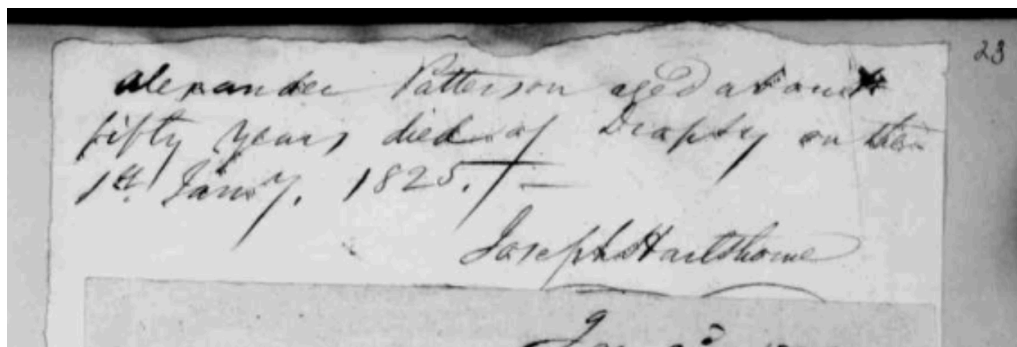 23
Alexander Patterson aged about
fifty years died of Dropsy on the
1st. Jany. 1825.
Joseph Hartshorne